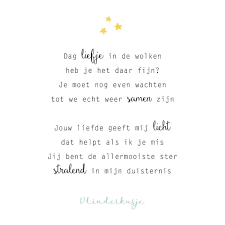 Dag liefje in de wolken
heb je het daar fijn?
Je moet nog even wachten
tot we echt weer samen zijn
Jouw liefde geeft mij licht
dat helpt als ik je mis
Jij bent de allermooiste ster
stralend in mijn duisternis
Vlinderkusje